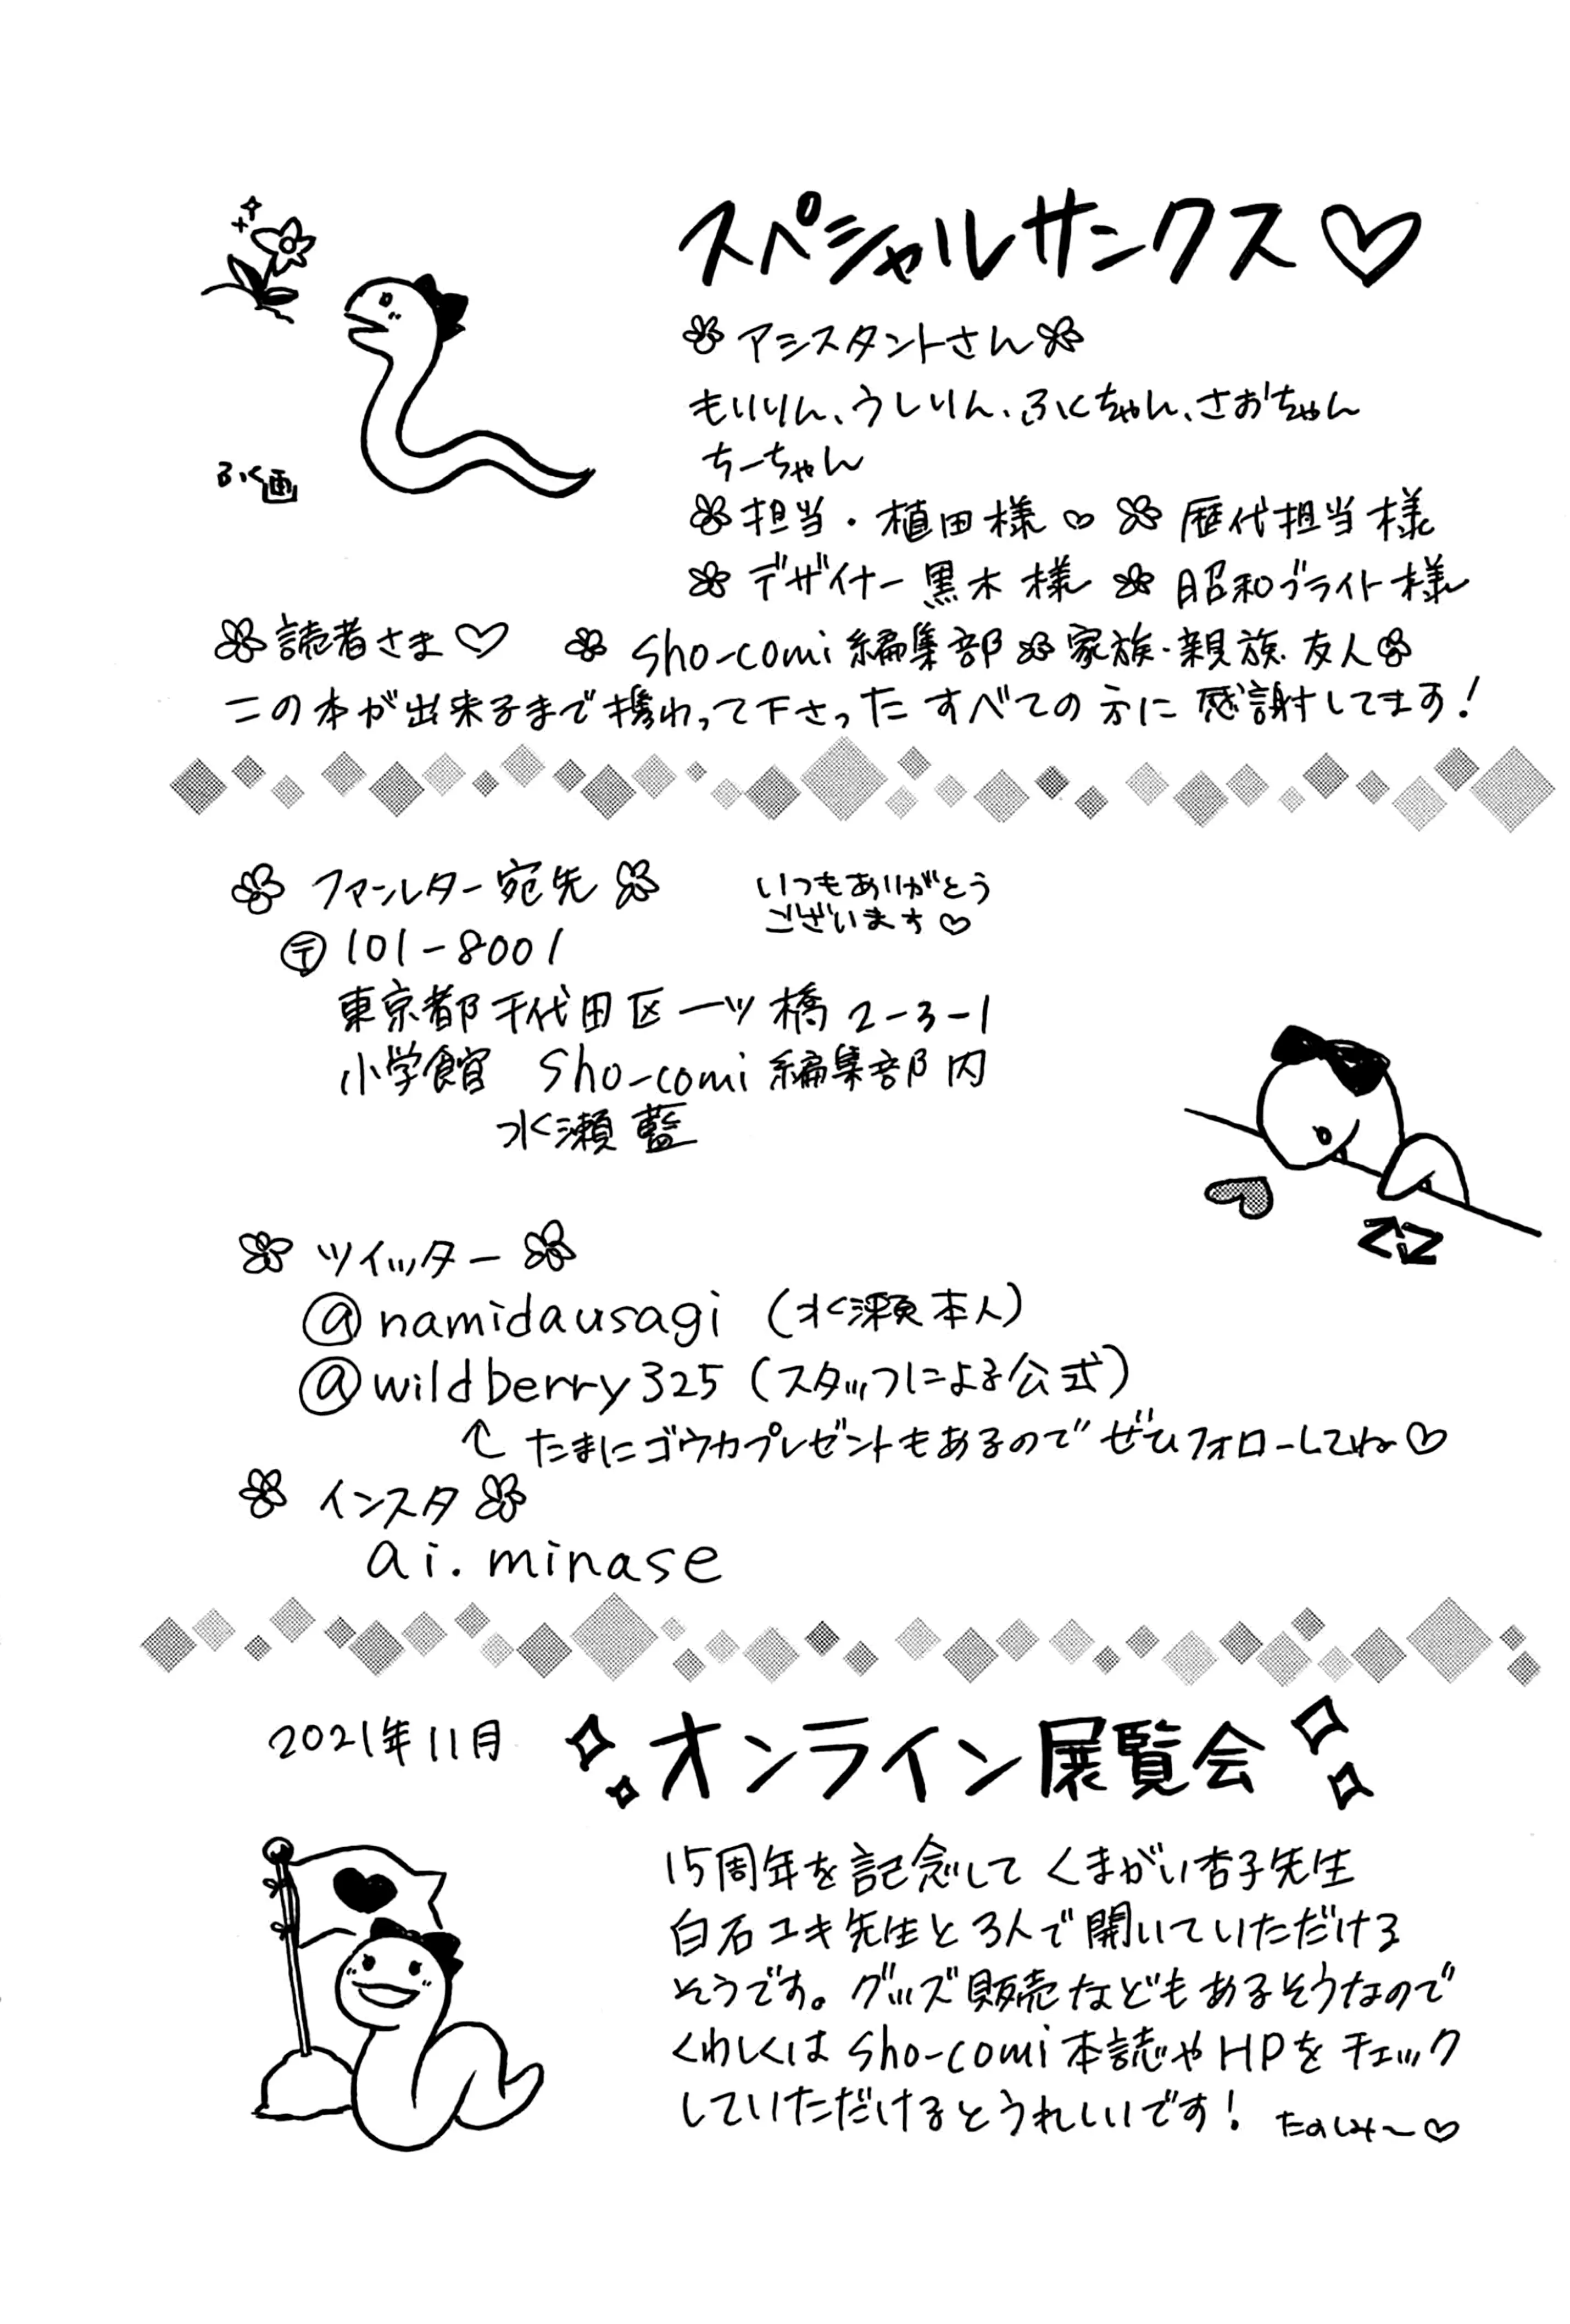 スペシャルサンクス♡
アシスタントさん
もりりん、うしりん、ふくちゃん、さおちゃん
ちーちゃん
ふく画
担当・植田様♡ 歴代担当様
デザイナー黒木様 昭和ブライト様
読者さま♡ Sho-comi編集部 家族・親族・友人
この本が出来るまで携わって下さったすべての方に感謝してます!
ファンレター宛先
いつもありがとう
ございます♡
〒101-8001
東京都千代田区一ツ橋2-3-1
小学館 Sho-comi編集部内
水瀬藍
ツイッター
@namidausagi (水瀬本人)
@wildberry325 (スタッフによる公式)
↑たまにゴウカプレゼントもあるのでぜひフォローしてね♡
インスタ
ai.minase
2021年11月 オンライン展覧会
15周年を記念してくまがい杏子先生
白石ユキ先生と3人で開いていただける
そうです。グッズ販売などもあるそうなので
くわしくはSho-comi本誌やHPをチェック
していただけるとうれしいです! たのしみ〜♡